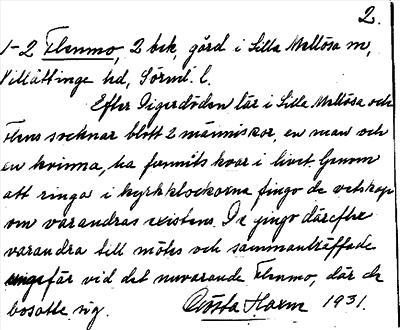 2.
1-2 Flenmo, 2 bek. gård i Lilla Mellösa sn,
Villåttinge hd, Sörml. l.
Efter Digerdöden lär i Lilla Mellösa och
Flens socknar blott 2 människor, en man och
en kvinna, ha funnits kvar i livet. Genom
att ringa i kyrkklockorna fingo de vetskap
om varandras existens. De gingo därefter
varandra till mötes och sammanträffade
ungefär vid det nuvarande Flenmo, där de
bosatte sig. Gösta Harm 1931.